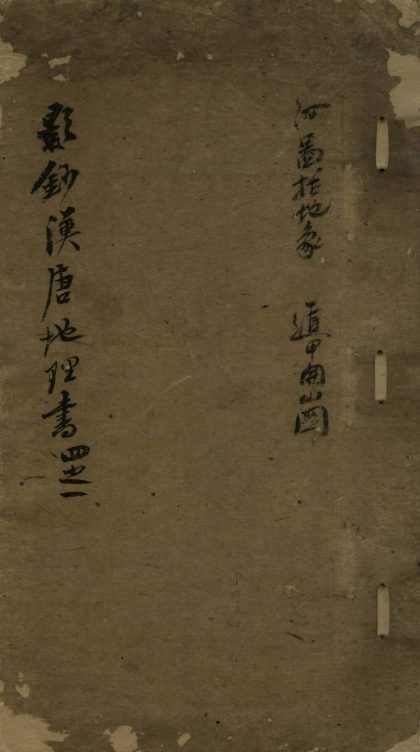 河啚括地象　遁甲開山圖
影鈔漢唐地理書 四之一